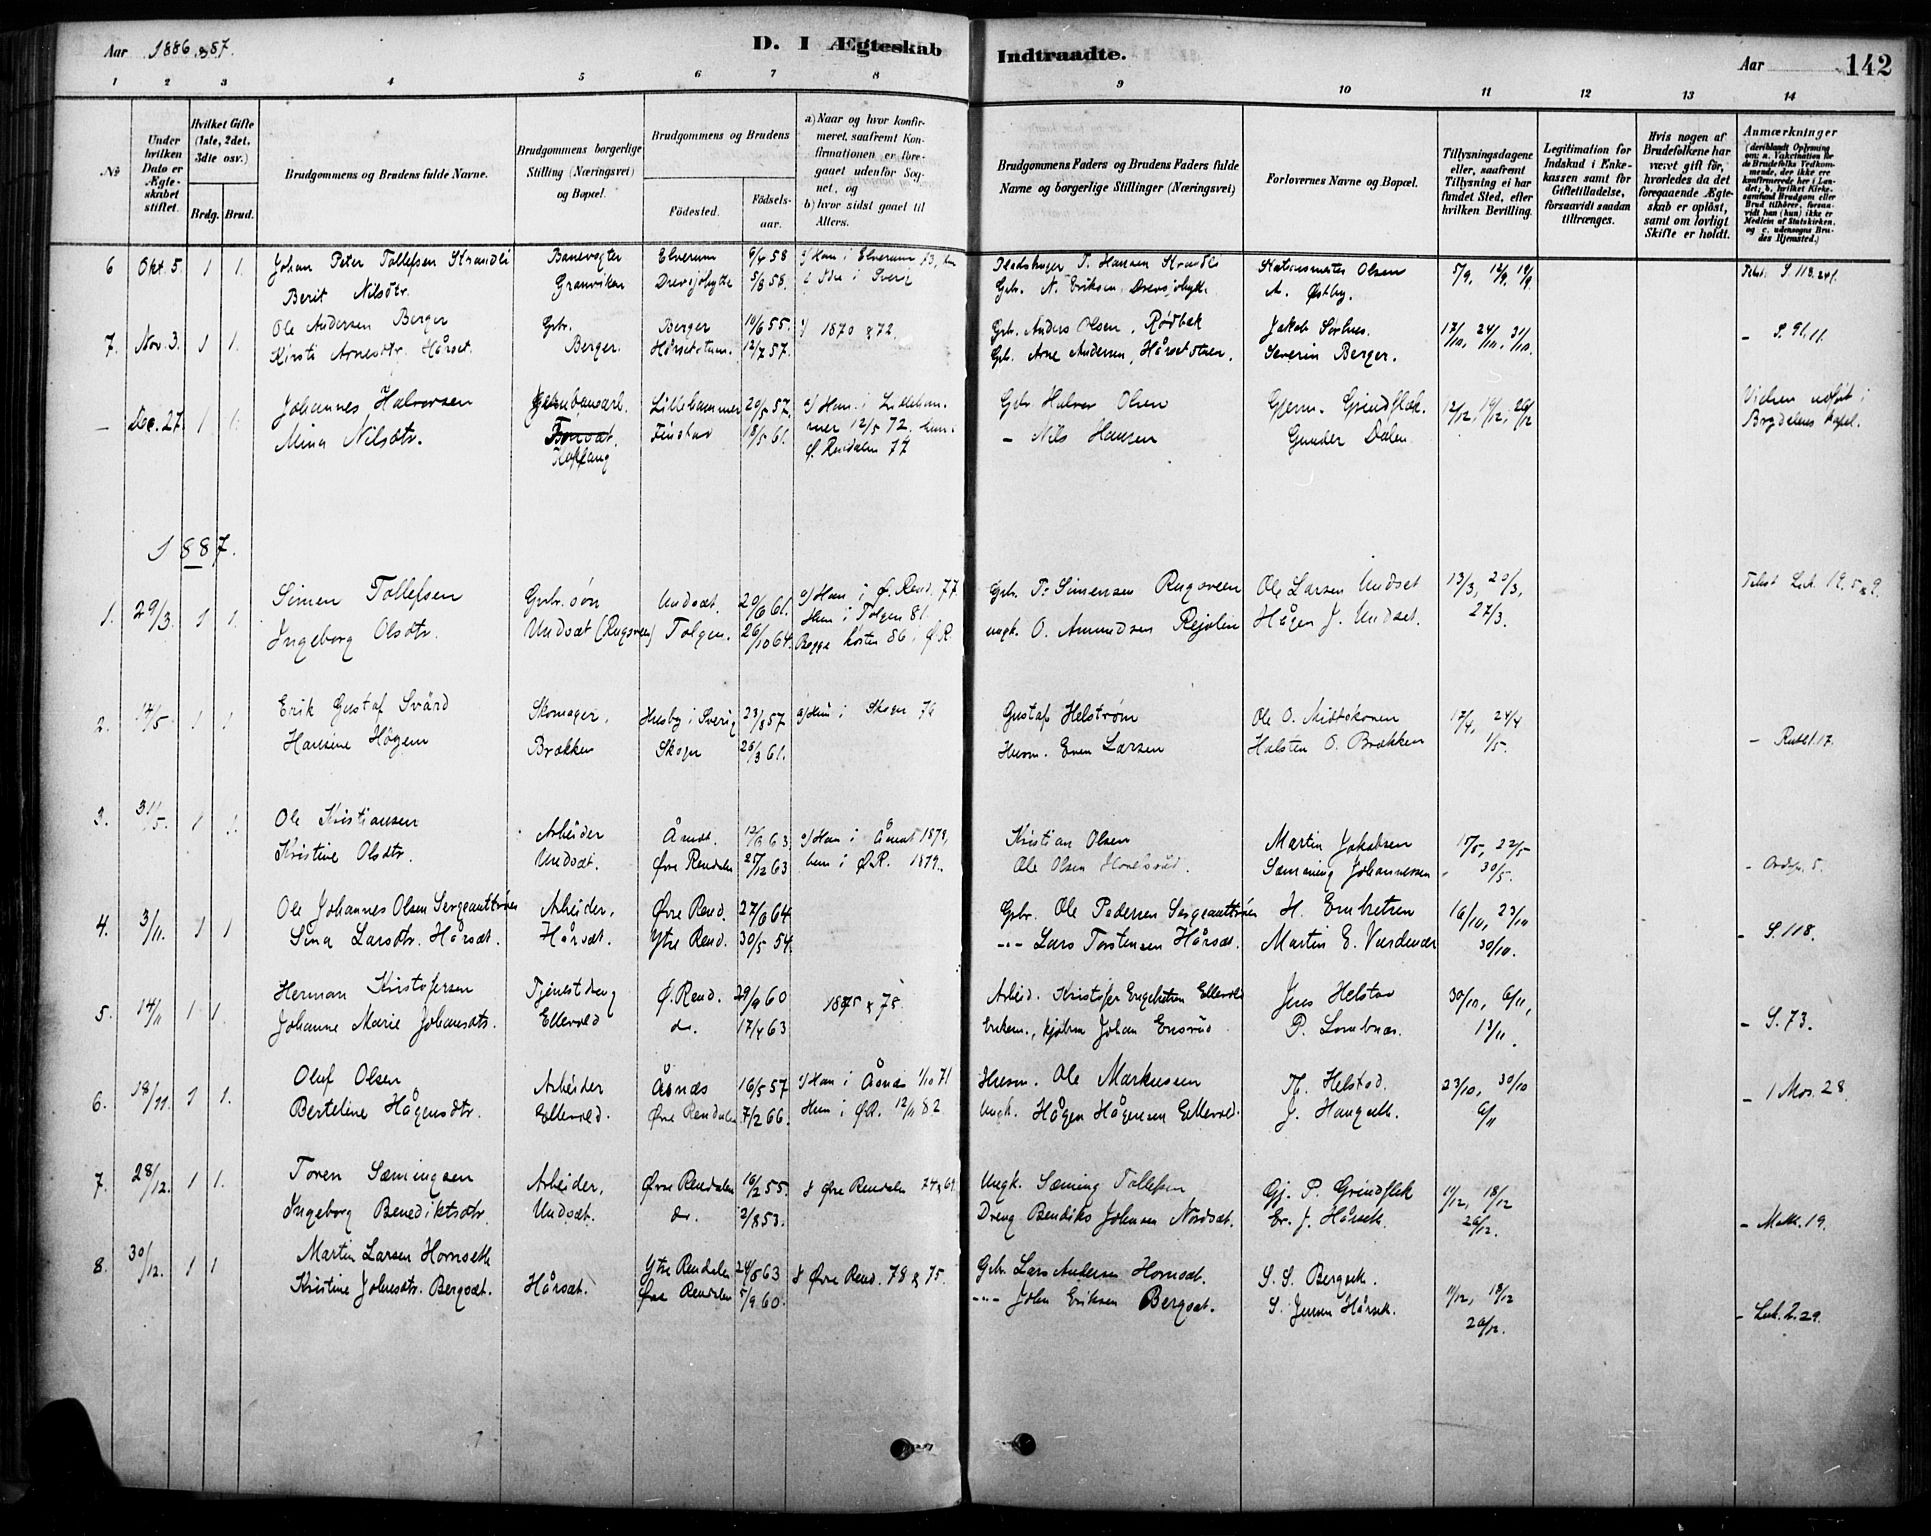 Aar 1886 & 87.
D. I Ægteskab Indtraadte.
Aar 142
1 2 3 4 5 6 7 8 9 10 11 12 13 14
No
Under hvilken Dato er Ægteskabet stiftet.
Hvilket Gifte (1ste, 2det, 3die osv.)
Brdg. Brud.
Brudgommens og Brudens fulde Navne.
Brudgommens borgerlige Stilling (Næringsvei) og Bopæl.
Brudgommens og Brudens
Fødested.
Fødselsaar.
a) Naar og hvor konfirmeret, saafremt Konfirmationen er foregaaet udenfor Sognet, og
b) hvor sidst gaaet til Alters.
Brudgommens Faders og Brudens Faders fulde Navne og borgerlige Stillinger (Næringsvei)
Forlovernes Navne og Bopæl.
Tillysningsdagene eller, saafremt Tillysning ei har fundet Sted, efter hvilken Bevilling.
Legitimation for Indskud i Enkekassen samt for Giftetilladelse, forsaavidt saadan tiltrænges.
Hvis nogen af Brudefolkene har været gift før, hvorledes da det foregaaende Ægteskab er opløst, samt om lovligt Skifte er holdt.
Anmærkninger
(deriblandt Oplysning om: a. Vakcination for de Brudefolks Vedkommende, der ikke ere konfirmerede her i Landet; b. hvilket Kirkesamfund Brudgom eller Brud tilhører, forsaavidt han (hun) ikke er Medlem af Statskirken, og c. udensogns Brudes Hjemsted.)
6 Okt. 5. 1 1. Johan Peter Tollefsen Strandli Banevogter Elverum 6/4 58 a/ Han i Elverum 73, hun Pladsbruger T. Hansen Strandli Stationsmester Olsen 5/9, 12/9, 19/9 Text: S. 118.24f.
Berit Nilsdtr. Granvikan Drevsjøhytte 5/8 58. i Idre i Sverig Gbr. N. Eriksen Drevsjøhytt. A. Østby.
7. Nov. 3. 1 1. Ole Andersen Berger Gbr. Berger 10/6 55. a/ 1870 & 72. Gbr. Anders Olsen, Rødbæk Jakob Sørhus. 17/10, 24/10, 31/10. - S. 91.11.
Kirsti Arnesdtr. Hårset. Berger. Hårsetstuen. 12/7 57. Gbr. Arne Andersen, Hårsetstuen. Severin Berger.
- Dec. 27. 1 1. Johannes Halvorsen Jernbanearb. Lillehammer 20/5 57. a/ Han i Lilleham- Gbr. Halvor Olsen Gjerm. Grindflek. 12/12, 19/12, 26/12 Vielsen udført i
Mina Nilsdtr. Finstad 18/5 61. mer 12/5 72. hun i - Nils Hansen Gunder Dalen Brydalens kapel.
Koppang Ø. Rendalen 77
1887.
1. 29/3 1 1. Simen Tollefsen Gbr. søn Undsæt. 20/6 61. a/ Han i Ø. Rend. 77 Gbr. T. Simensen Rugsveen Ole Larsen Undset 13/3, 20/3, Text Luk. 19.5 & 9.
Ingeborg Olsdtr. Undsæt (Rugsveen) Tolgen. 26/10 64. Hun i Tolgen 81. ungk. O. Amundsen Rejolen Hågen J. Undset. 27/3.
Begge høsten 86 i Ø.R.
2. 14/5 1 1 Erik Gustaf Svärd Skomager, Husby i Sverig 23/8 57 a/ Hun i Skogn 76 Gustaf Helstrøm Ole O. Midtskonen 17/4, 24/4
Hansine Høgem Brækken Skogn 26/3 61. Husm. Even Larsen Halsten O. Brækken 1/5. - Ruth 1.17.
3. 31/5. 1 1. Ole Kristiansen Arbeider Åmot. 12/6 63 a/ Han i Åmot 1878, Kristian Olsen Martin Jakobsen 15/5, 22/5
Kristine Olsdtr. Undsæt. Øvre Rendalen 25/12 63 hun i Ø.R. 1879. Ole Olsen Sæming Johannessen 30/5. - Ordsp. 5.
4. 3/11. 1 1 Ole Johannes Olsen Sergeanttrøen Arbeider, Øvre Rend. 27/6 64. Gbr. Ole Pedersen Sergeanttrøen H. Embretsen 16/10, 23/10
Sina Larsdtr. Hårsæt. Hårsæt. Ytre Rend. 30/5 54. --- Lars Torstensen Hårsæt. Martin E. Værdenær 30/10. - S. 118.
5. 14/11 1 1. Herman Kristofersen Tjenestdreng Ø. Rend. 29/9 60 1875 & 78. Arbeid. Kristofer Engebretsen Ellevold Jens Helstad 30/10, 6/11,
Johanne Marie Johansdtr. Ellevold do. 17/4 63. Enkem., Johan Ensrud P. Lombnæs. 13/11. - S. 73.
6. 18/11. 1 1. Oluf Olsen Arbeider Åsnæs 16/5 57 a/ Han i Åsnæs 1/10 71 Husm. Ole Markussen Th. Helstad. 23/10, 30/10
Berteline Hågensdtr. Ellevold. Øvre Rendalen 7/2 66. Hun i Ø.R. 12/11 82 Ungk. Hågen Hågensen Ellevold. J. Haugseth. 6/11 - 1 Mos. 28.
7. 28/12. 1 1. Toren Sæmingsen Arbeider, Øvre Rendalen 16/2 55. Øvre Rendalen 74 & 69 Ungk. Sæming Tollefsen Gj. P. Grindflek 11/12, 18/12
Ingeborg Benediktsdtr. Undsæt. do. 2/8 53. Dreng Bendiks Johnsen Nordsæt. Er. J. Hårseth. 26/12. - Matt. 19.
8. 30/12. 1 1 Martin Larsen Hornseth Ytre Rendalen 24/8 63 Øvre Rend. 78 & 75. Gbr. Lars Andersen Hornsæt. S. S. Bergseth. 11/12, 18/12
Kristine Johnsdtr. Bergsæt. Hårsæt. Øvre Rendalen 5/9 60. --- John Eriksen Bergsæt. S. Jensen Hårseth. 26/12. - Luk. 2.29.